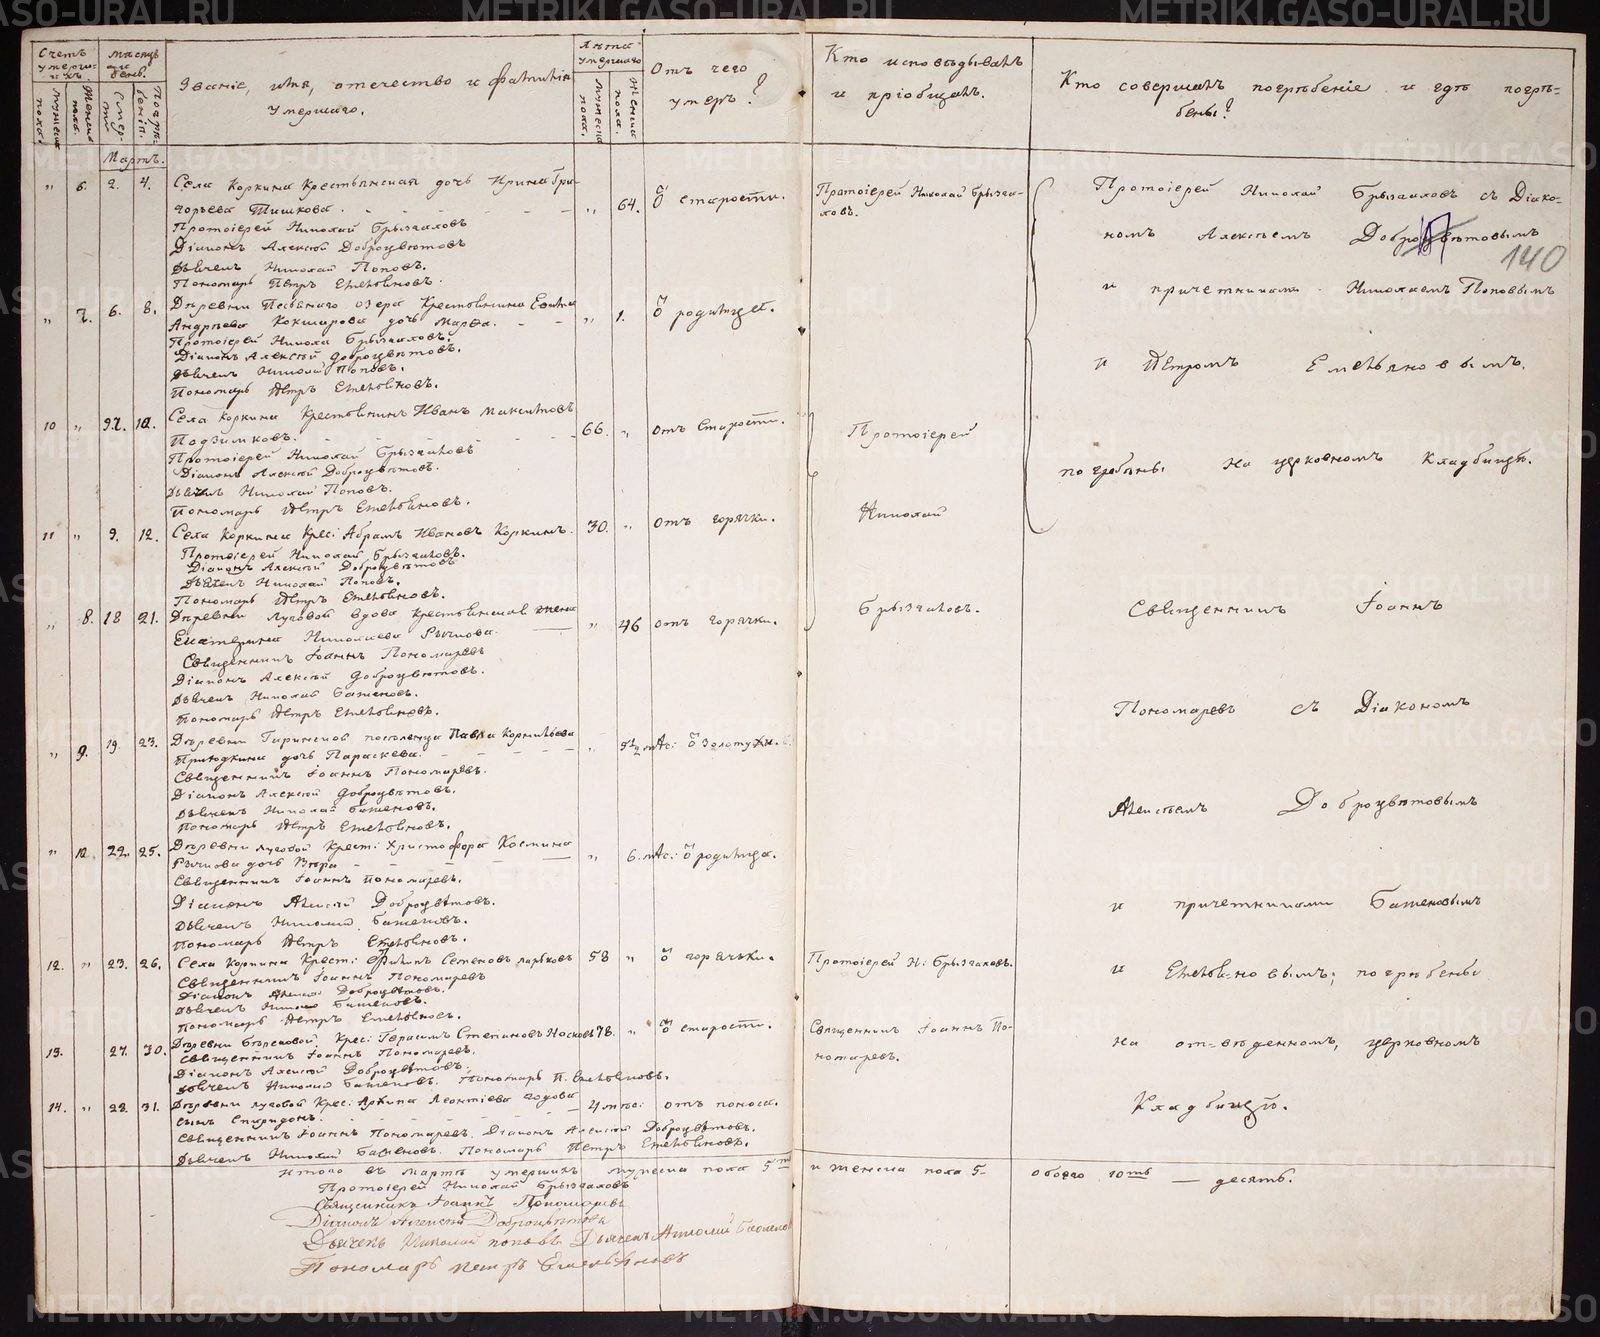 Счетъ умерши-ихъ.
Мужеска пола.
Женска пола.
Мѣсяцъ и день.
Смерти
Погребенія.
Званіе, имя, отечество и фамилія умершаго.
Лѣта умершаго
Мужеска пола.
Женска пола.
Отъ чего умеръ?
Кто исповѣдывалъ и пріобщалъ.
Кто совершалъ погребеніе и гдѣ погрѣ=
бены?
Мартъ.
" 6. 2. 4. Села Коркина крестьянская дочь Ирина Гри-
горьева Тишкова. " 64. ѿ старости.
Протоіерей Николай Брызгаловъ
Діаконъ Алексѣй Доброцвѣтовъ
Дьячекъ Николай Поповъ.
Пономарь Петръ Емельяновъ.
Протоіерей Николай Брызга-
ловъ.
" 7. 6. 8. Деревни озера Крестьянина
Андреева Кокшарова дочь Марѳа. " 1. ѿ родимца.
Протоіерей Никола Брызгаловъ.
Діаконъ Алексѣй Доброцвѣтовъ.
Дьячекъ Николай Поповъ.
Пономарь Петръ Емельяновъ.
10 " 9. 12. Села Коркина Крестьянинъ Иванъ Максимовъ
Подзимковъ. 66. " отъ старости.
Протоіерей Николай Брызгаловъ
Діаконъ Алексѣй Доброцвѣтовъ.
Дьячекъ Николай Поповъ.
Пономарь Петръ Емельяновъ.
11 " 9. 12. Села Коркина Крес: Абрамъ Ивановъ Коркинъ. 30. " отъ горячки.
Протоіерей Николай Брызгаловъ.
Діаконъ Алексѣй Доброцвѣтовъ
Дьячекъ Николай Поповъ.
Пономарь Петръ Емельяновъ.
Протоіерей
Николай
Брызгаловъ.
" 8. 18 21. Деревни Луговой вдова крестьянская жена
Екатерина Николаева Рычкова. " 46 отъ горячки.
Священникъ Іоаннъ Пономаревъ
Діаконъ Алексѣй Доброцвѣтовъ.
Дьячекъ Николай Баженовъ.
Пономарь Петръ Емельяновъ.
" 9. 19. 23. Деревни поселенца Павла Корнильева
дочь Параскева. " ѿ золотухи.
Священникъ Іоаннъ Пономаревъ.
Діаконъ Алексѣй Доброцвѣтовъ.
Дьячекъ Николай Баженовъ.
Пономарь Петръ Емельяновъ.
" 10. 22. 25. Деревни Луговой Крест: Христофора Космина
Рычкова дочь Вѣра " 6. мѣс: ѿ родимца.
Священникъ Іоаннъ Пономаревъ.
Діаконъ Алексѣй Доброцвѣтовъ.
Дьячекъ Николай Баженовъ.
Пономарь Петръ Емельяновъ.
12. " 23. 26. Села Коркина Крест: Филипъ Семеновъ 58 " ѿ горячки.
Священникъ Іоаннъ Пономаревъ
Діаконъ Алексѣй Доброцвѣтовъ.
Дьячекъ Николай Баженовъ.
Пономарь Петръ Емельяновъ.
Протоіерей Н: Брызгаловъ.
13. 27. 30. Деревни Крес: Герасимъ Степановъ Носковъ 78. " ѿ старости.
Священникъ Іоаннъ Пономаревъ.
Діаконъ Алексѣй Доброцвѣтовъ.
Дьячекъ Николай Баженовъ. Пономарь П. Емельяновъ.
Священникъ Іоаннъ По-
номаревъ.
14. " 31. Деревни Луговой Крес: Архипа Леонтіева
сынъ Спиридонъ. отъ поноса.
Священникъ Іоаннъ Пономаревъ. Діаконъ Алексѣй Доброцвѣтовъ.
Дьячекъ Николай Баженовъ. Пономарь Петръ Емельяновъ.
Протоіерей Николай Брызгаловъ съ Діако-
номъ Алексѣемъ Доброцвѣтовымъ
140
и причетниками Николаемъ Поповымъ
и Петромъ Емельяновымъ.
погребены на церковномъ Кладбищѣ.
Священникъ Іоаннъ
Пономаревъ съ Діакономъ
Алексѣемъ Доброцвѣтовымъ
и причетниками Баженовымъ
и Емельяновымъ; погребены
на отведенномъ, церковномъ
Кладбищѣ.
Итого въ Мартѣ умершихъ мужеска пола 5ть и женска пола 5- обоего 10ть — десять.
Протоіерей Николай Брызгаловъ
Священникъ Іоаннъ Пономаревъ
Діаконъ Алексѣй Доброцвѣтовъ
Дьячекъ Николай Поповъ Дьячекъ Николай Баженовъ
Пономарь Петръ Емельяновъ
METRIKI.GASO-URAL.RU